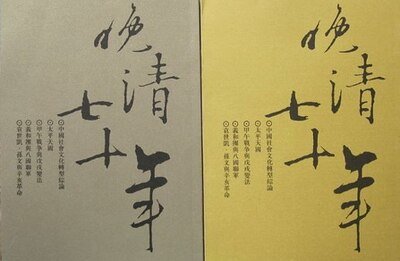 晚清
七十年
⊙中國社會文化轉型綜論
⊙太平天國
⊙甲午戰爭與戊戌變法
⊙義和團與八國聯軍
⊙袁世凱·孫文與辛亥革命
晚清
七十年
⊙中國社會文化轉型綜論
⊙太平天國
⊙甲午戰爭與戊戌變法
⊙義和團與八國聯軍
⊙袁世凱·孫文與辛亥革命